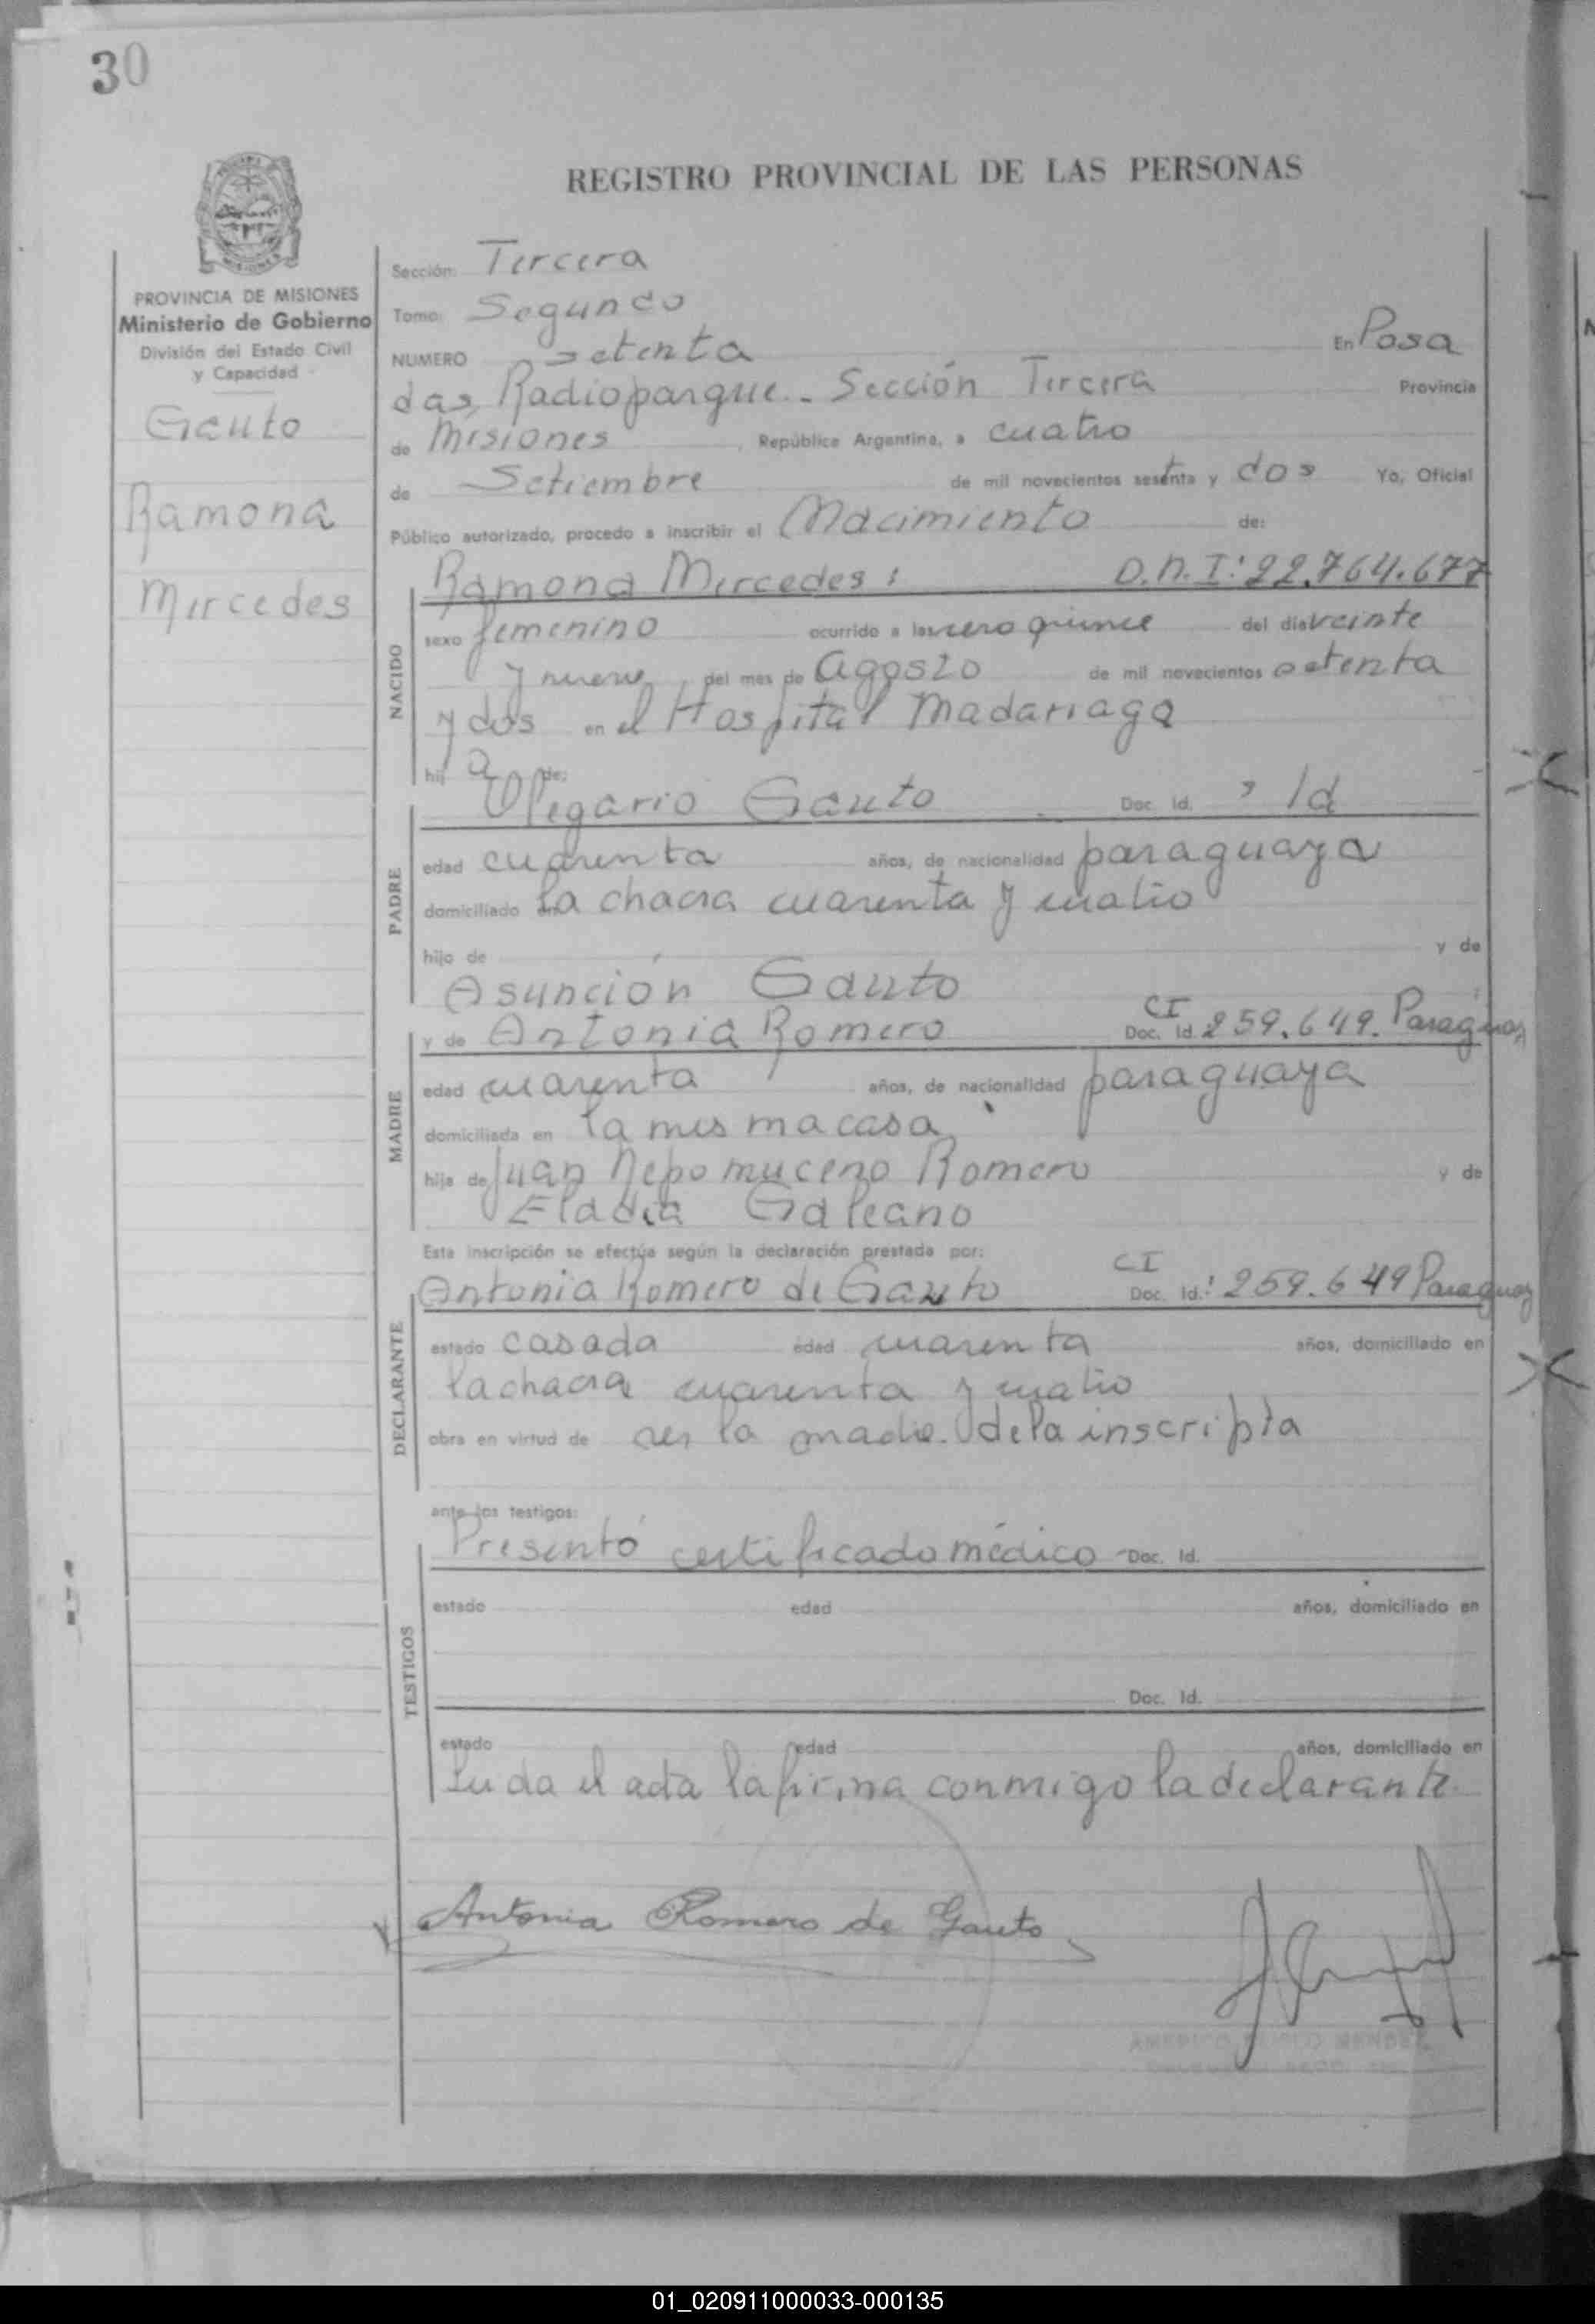 30
REGISTRO PROVINCIAL DE LAS PERSONAS
PROVINCIA DE MISIONES
Ministerio de Gobierno
División del Estado Civil
y Capacidad
Gauto
Ramona
Mercedes
Sección: Tercera
Tomo: Segundo
NUMERO setenta En Posa
das, Radioparque - Sección Tercera Provincia
de Misiones, República Argentina, a cuatro
de Setiembre de mil novecientos setenta y dos Yo, Oficial
Público autorizado, procedo a inscribir el Nacimiento de:
NACIDO
Ramona Mercedes: D.N.I: 22.764.677
sexo femenino ocurrido a las cero quince del día veinte
y nueve del mes de Agosto de mil novecientos setenta
y dos en el Hospital Madariaga
hij a de:
PADRE
Olegario Gauto Doc. Id. Id
edad cuarenta años, de nacionalidad paraguaya
domiciliado en la chacra cuarenta y cuatro
hijo de y de
Asunción Gauto
MADRE
y de Antonia Romero CI Doc. Id. 259.649. Paraguay
edad cuarenta años, de nacionalidad paraguaya
domiciliada en la misma casa
hija de Juan Nepomuceno Romero y de
Eladia Galeano
Esta inscripción se efectúa según la declaración prestada por:
DECLARANTE
Antonia Romero de Gauto CI Doc. Id.: 259.649 Paraguay
estado casada edad cuarenta años, domiciliado en
la chacra cuarenta y cuatro
obra en virtud de ser la madre de la inscripta
ante los testigos:
TESTIGOS
Presentó certificado médico - Doc. Id.
estado edad años, domiciliado en
Doc. Id.
estado edad años, domiciliado en
Leída el acta la firma conmigo la declarante.
Antonia Romero de Gauto
01_020911000033-000135